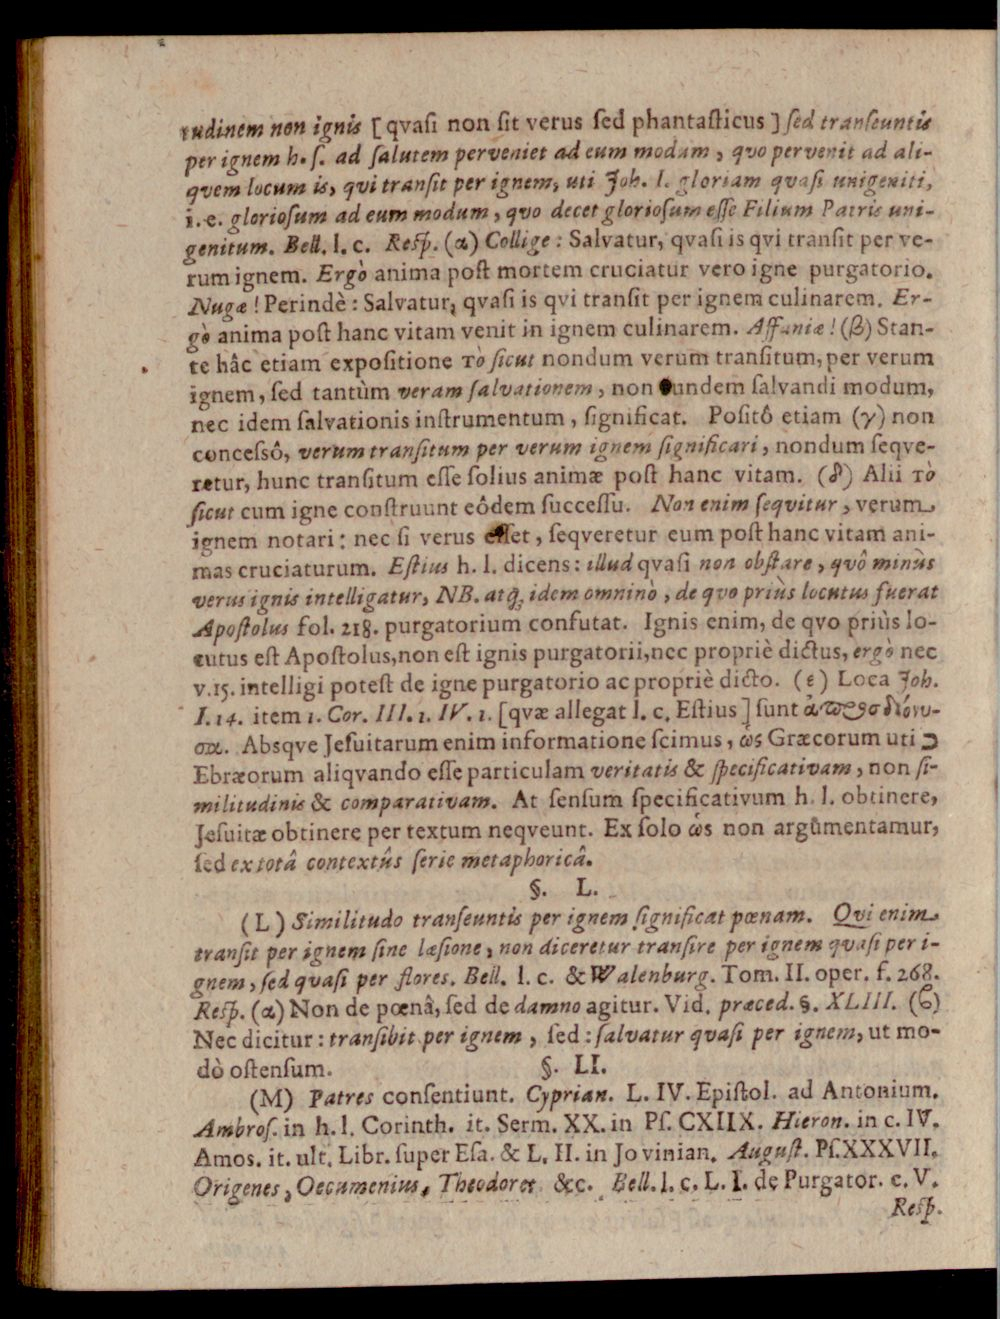 tudinem non ignis [qvaſi non ſit verus ſed phantaſticus] ſed tranſeuntis
per ignem h. ſ. ad ſalutem perveniet ad eum modum, qvo pervenit ad ali-
qvem locum is, qvi tranſit per ignem, uti Joh. I. gloriam quaſi unigeniti,
i. e. glorioſum ad eum modum, qvo decet glorioſum eſſe Filium Patris uni-
genitum. Bell. l. c. Reſp. (α) Collige: Salvatur, qvaſi is qvi tranſit per ve-
rum ignem. Ergò anima poſt mortem cruciatur vero igne purgatorio.
Nugæ! Perindè: Salvatur, qvaſi is qvi tranſit per ignem culinarem. Er-
gò anima poſt hanc vitam venit in ignem culinarem. Affaniæ! (β) Stan-
te hâc etiam expoſitione τὸ ſicut nondum verum tranſitum, per verum
ignem, ſed tantùm veram ſalvationem, non eundem ſalvandi modum,
nec idem ſalvationis inſtrumentum, ſignificat. Poſitô etiam (γ) non
conceſsô, verum tranſitum per verum ignem ſignificari, nondum ſeqve-
retur, hunc tranſitum eſſe ſolius animæ poſt hanc vitam. (δ) Alii τὸ
ſicut cum igne conſtruunt eôdem ſucceſſu. Non enim ſeqvitur, verum
ignem notari: nec ſi verus eſſet, ſeqveretur eum poſt hanc vitam ani-
mas cruciaturum. Eſtius h. l. dicens: illud qvaſi non obſtare, qvô minùs
verus ignis intelligatur, NB. atq; idem omninò, de qvo priùs locutus fuerat
Apoſtolus fol. 218. purgatorium confutat. Ignis enim, de qvo priùs lo-
cutus eſt Apoſtolus, non eſt ignis purgatorii, nec propriè dictus, ergò nec
v. 15. intelligi poteſt de igne purgatorio ac propriè dicto. (ε) Loca Joh.
I. 14. item 1. Cor. III. 1. IV. 1. [qvæ allegat l. c. Eſtius] ſunt ἀπροσδιόνυ-
σα. Absqve Jeſuitarum enim informatione ſcimus, ὡς Græcorum uti כ
Ebræorum aliqvando eſſe particulam veritatis & ſpecificativam, non ſi-
militudinis & comparativam. At ſenſum ſpecificativum h. l. obtinere,
Jeſuitæ obtinere per textum neqveunt. Ex ſolo ὡς non argûmentamur,
ſed ex totâ contextûs ſerie metaphoricâ.
§. L.
(L) Similitudo tranſeuntis per ignem ſignificat pœnam. Qvi enim
tranſit per ignem ſine læſione, non diceretur tranſire per ignem quaſi per i-
gnem, ſed quaſi per flores. Bell. l. c. & Walenburg. Tom. II. oper. f. 268.
Reſp. (α) Non de pœnâ, ſed de damno agitur. Vid. præced. §. XLIII. (ϐ)
Nec dicitur: tranſibit per ignem, ſed: ſalvatur quaſi per ignem, ut mo-
dò oſtenſum.
§. LI.
(M) Patres conſentiunt. Cyprian. L. IV. Epiſtol. ad Antonium.
Ambroſ. in h. l. Corinth. it. Serm. XX. in Pſ. CXIIX. Hieron. in c. IV.
Amos. it. ult. Libr. ſuper Eſa. & L. II. in Jovinian. Auguſt. Pſ. XXXVII.
Origenes, Oecumenius, Theodoret &c. Bell. l. c. L. I. de Purgator. c. V.
Reſp.